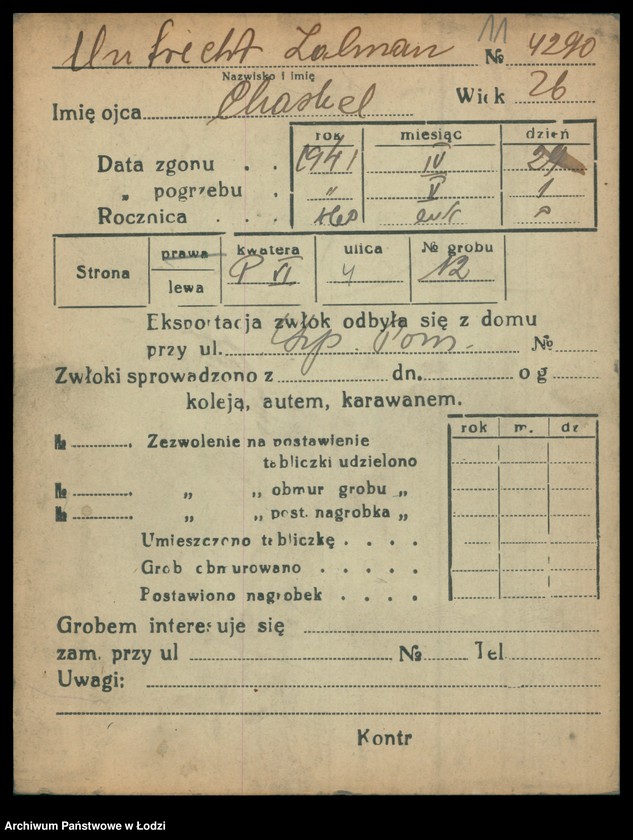 11
Zalman № 4290
Nazwisko i imię
Imię ojca Chaskel Wiek 26
rok miesiąc dzień
Data zgonu . . 1941 IV 29
„ pogrzebu . „ V 1
Rocznica . . .
Strona prawa lewa kwatera P VI ulica 4 № grobu 12
Eksportacja zwłok odbyła się z domu
przy ul. Szp. Pom. №
Zwłoki sprowadzono z dn. o g
koleją, autem, karawanem.
rok m. dz
№ Zezwolenie na postawienie
tabliczki udzielono
№ „ „ obmur grobu „
№ „ „ post. nagrobka „
Umieszczono tabliczkę . . . .
Grob obmurowano . . . . .
Postawiono nagrobek . . . .
Grobem interesuje się
zam. przy ul № Tel
Uwagi:
Kontr
Archiwum Państwowe w Łodzi